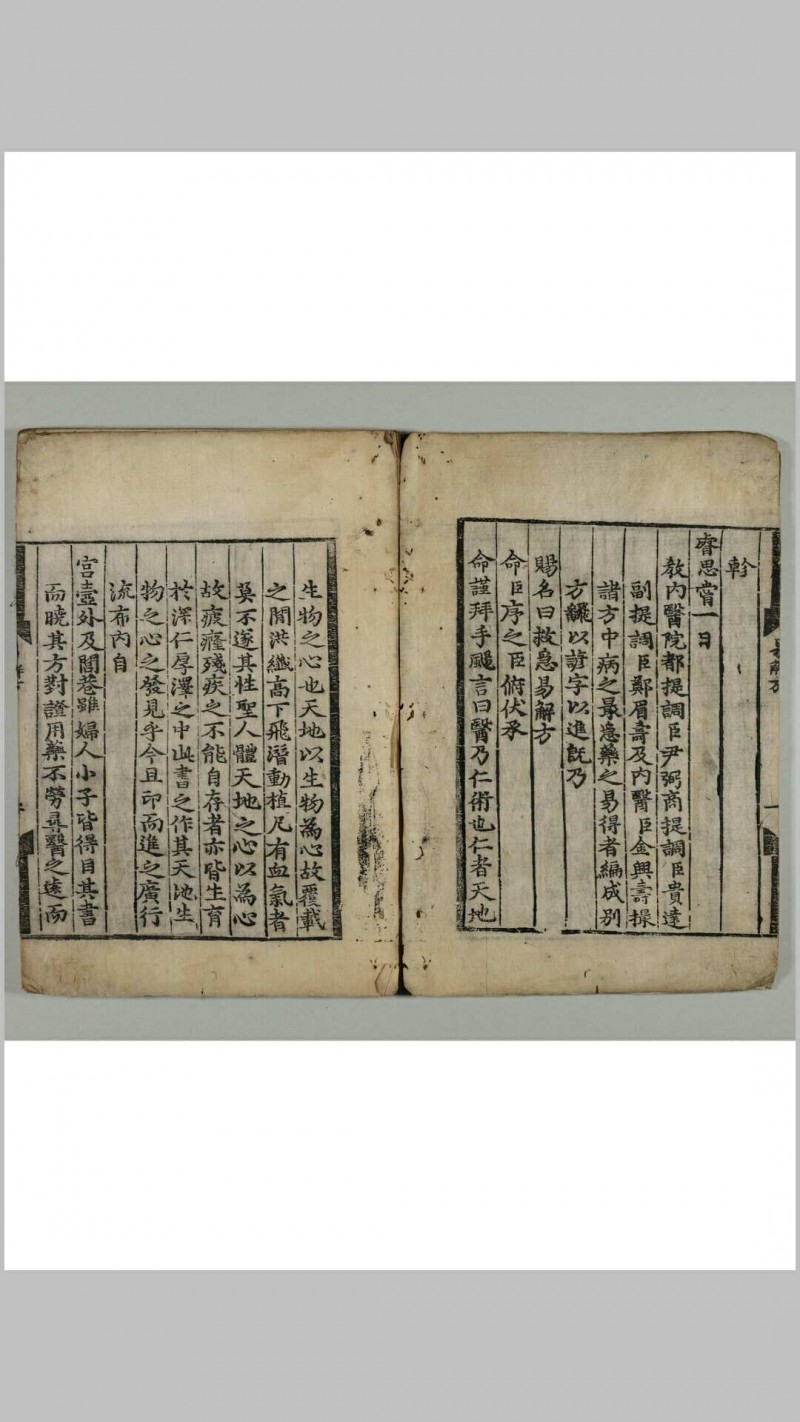 軫
睿思嘗一日
敎內醫院都提調臣尹弼商提調臣貴達
副提調臣鄭眉壽及內醫臣金興壽採
諸方中病之最急藥之易得者編成別
方飜以諺字以進旣乃
賜名曰救急易解方
命臣序之臣俯伏承
命謹拜手颺言曰醫乃仁術也仁者天地
生物之心也天地以生物為心故覆載
之間洪纖高下飛潛動植凡有血氣者
莫不遂其性聖人體天地之心以為心
故疲癃殘疾之不能自存者亦皆生育
於深仁厚澤之中此書之作其天地生
物之心之發見乎今且印而進之廣行
流布內自
宮壼外及閭巷雖婦人小子皆得目其書
而曉其方對證用藥不勞尋醫之遠而